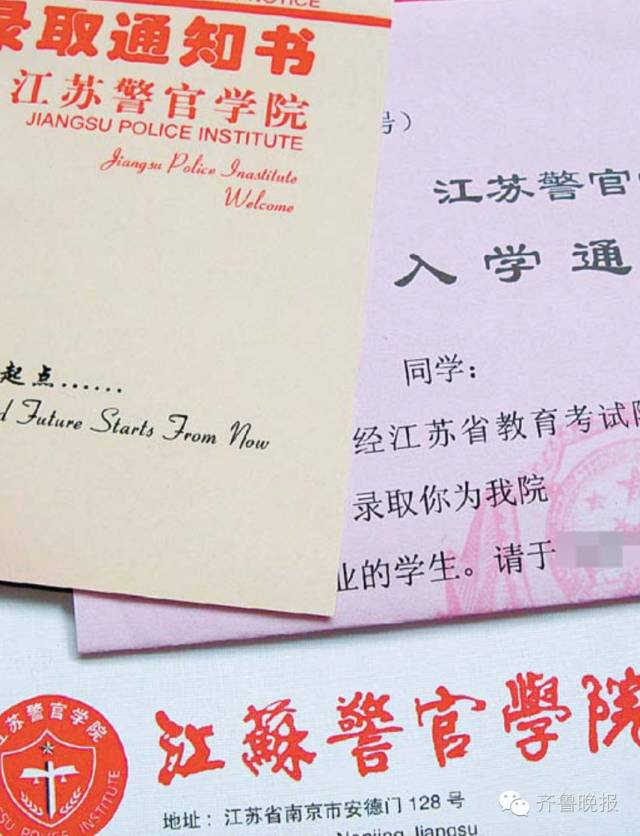 NOTICE
录取通知书
江苏警官学院
JIANGSU POLICE INSTITUTE
Jiangsu Police Inastitute
Welcome
起点......
Future Starts From Now
号）
江苏警官
入学通
同学：
经江苏省教育考试院
录取你为我院
业的学生。请于
江蘇警官學院
江苏警官学院
JIANGSU POLICE INSTITUTE
地址：江苏省南京市安德门128号
Nanjing Jiangsu
齐鲁晚报